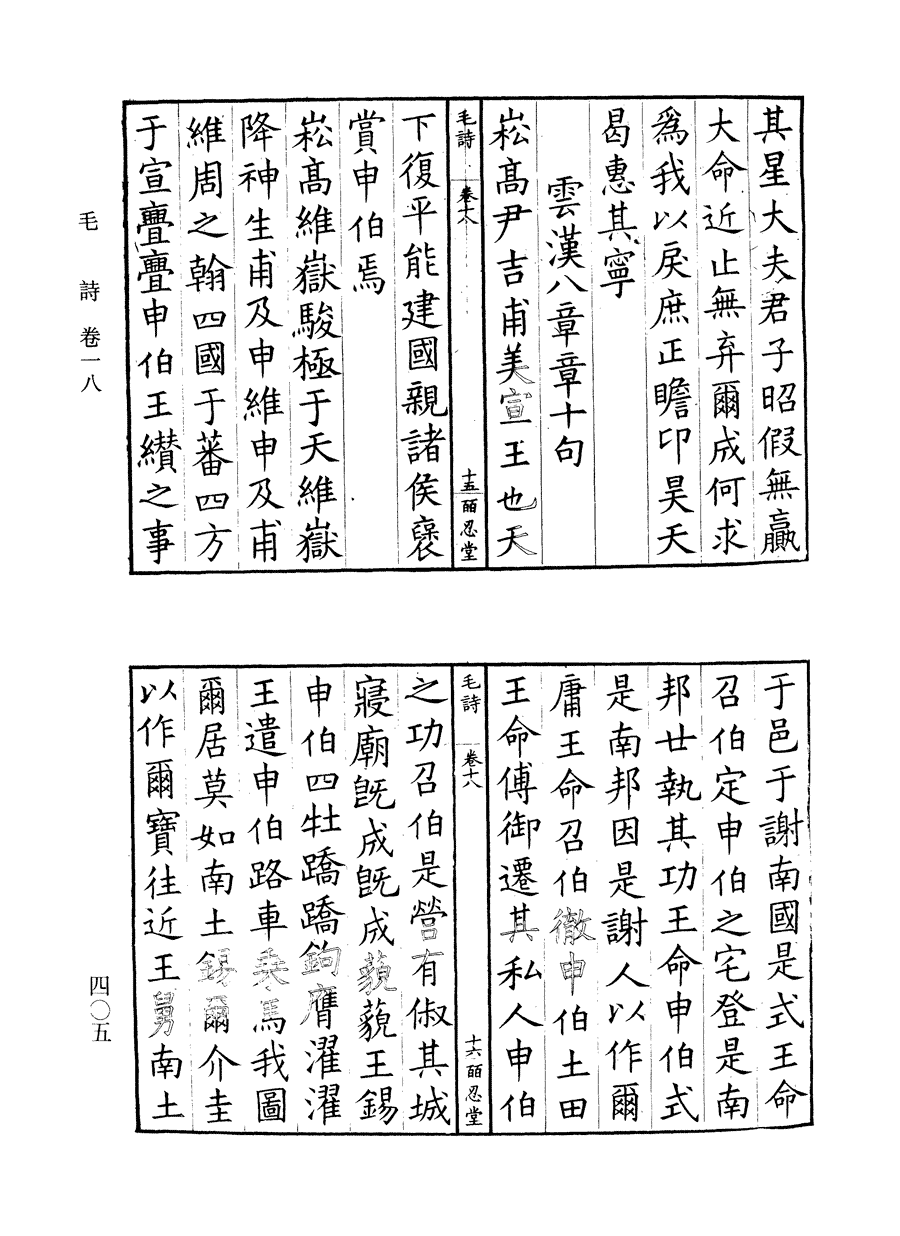 其星大夫君子昭假無贏
大命近止無弃爾成何求
爲我以戾庶正瞻卬昊天
曷惠其寧
雲漢八章章十句
崧高尹吉甫美宣王也天
毛詩 卷十八 十五 皕忍堂
下復平能建國親諸侯襃
賞申伯焉
崧高維嶽駿極于天維嶽
降神生甫及申維申及甫
維周之翰四國于蕃四方
于宣亹亹申伯王纘之事
毛詩 卷一八
于邑于謝南國是式王命
召伯定申伯之宅登是南
邦廿執其功王命申伯式
是南邦因是謝人以作爾
庸王命召伯徹申伯土田
王命傅御遷其私人申伯
毛詩 卷十八 十六 皕忍堂
之功召伯是營有俶其城
寢廟旣成旣成藐藐王錫
申伯四牡蹻蹻鉤膺濯濯
王遣申伯路車乗馬我圖
爾居莫如南土錫爾介圭
以作爾寶往近王舅南土
四〇五